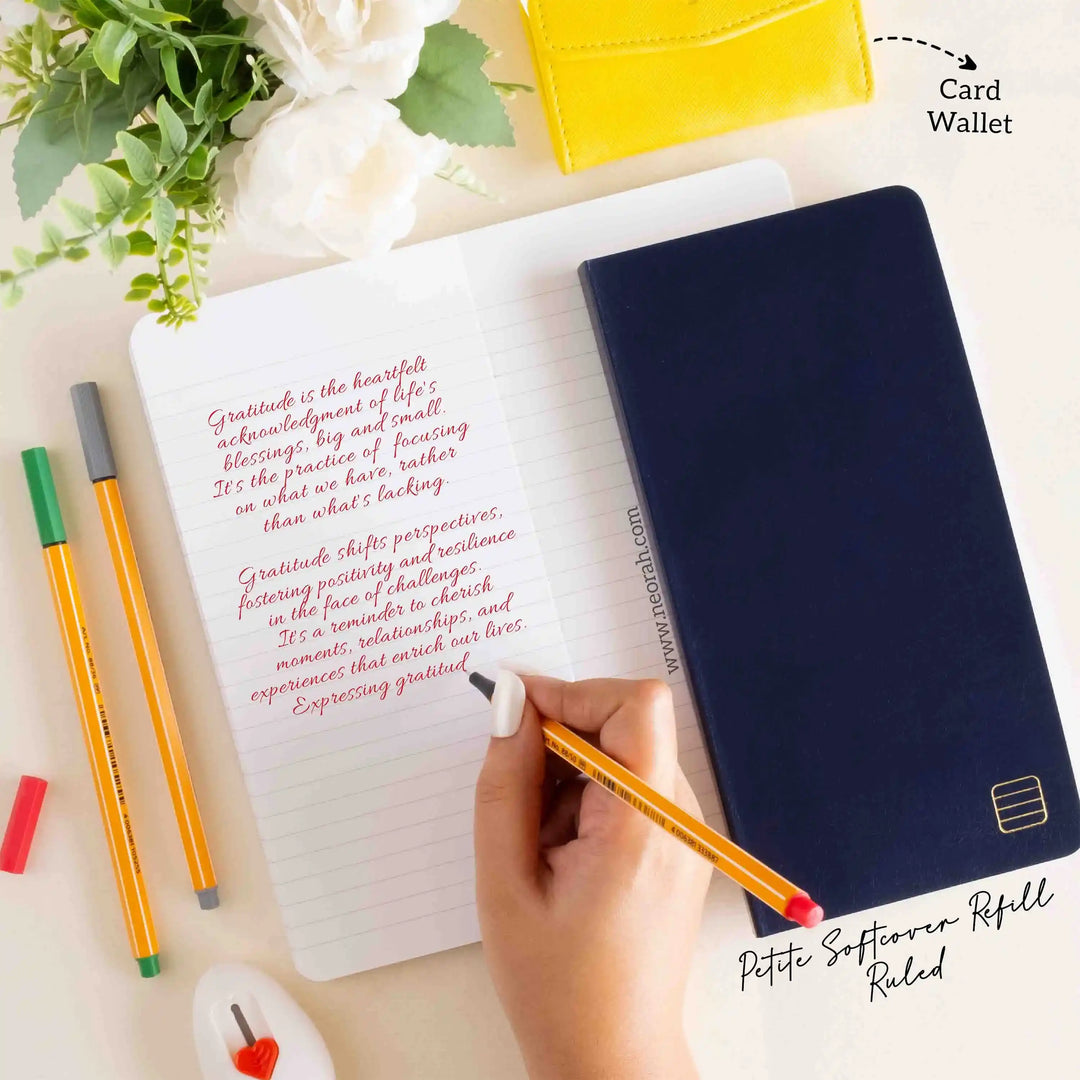 Card
Wallet
Gratitude is the heartfelt
acknowledgment of life's
blessings, big and small.
It's the practice of focusing
on what we have, rather
than what's lacking.
Gratitude shifts perspectives,
fostering positivity and resilience
in the face of challenges.
It's a reminder to cherish
moments, relationships, and
experiences that enrich our lives.
Expressing gratitud
www.neorah.com
Petite Softcover Refill
Ruled